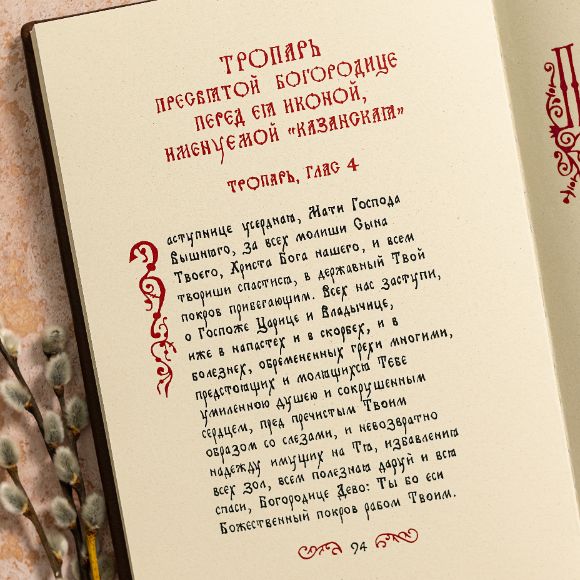 ТРОПАРЬ
ПРЕСВЯТОЙ БОГОРОДИЦЕ
ПЕРЕД ЕЯ ИКОНОЙ,
ИМЕНУЕМОЙ «КАЗАНСКАЯ»
ТРОПАРЬ, ГЛАС 4
Заступнице усердная, Мати Господа
Вышняго, За всех молиши Сына
Твоего, Христа Бога нашего, и всем
твориши спастися, в державный Твой
покров прибегающим. Всех нас заступи,
о Госпоже Царице и Владычице,
иже в напастех и в скорбех, и в
болезнех, обремененных грехи многими,
предстоящих и молящихся Тебе
умиленною душею и сокрушенным
сердцем, пред пречистым Твоим
образом со слезами, и невозвратно
надежду имущих на Тя, избавления
всех зол, всем полезная даруй и вся
спаси, Богородице Дево: Ты бо еси
Божественный покров рабом Твоим.
94